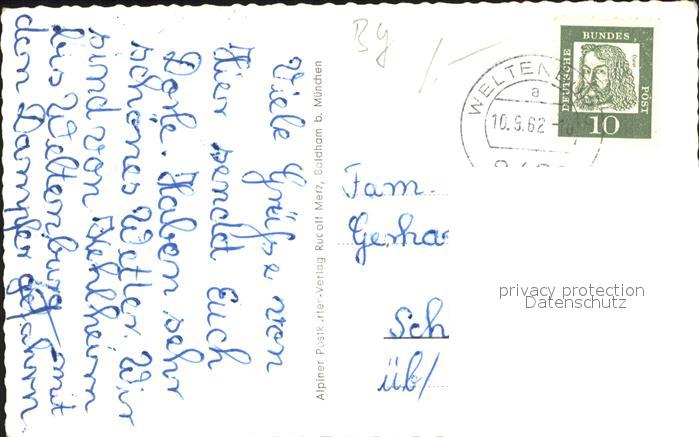 Viele Grüße von
Hier sendet Euch
Dorle. Haben sehr
schönes Wetter. Wir
sind von Kehlheim
bis Weltenburg mit
dem Dampfer gefahren.
Alpiner Postkarten-Verlag Rudolf Merz, Baldham b. München
By
/.—
WELTENBURG
a
10.9.62
DEUTSCHE
BUNDES
POST
10
Fam.
Gerha
Sch
üb/
privacy protection
Datenschutz